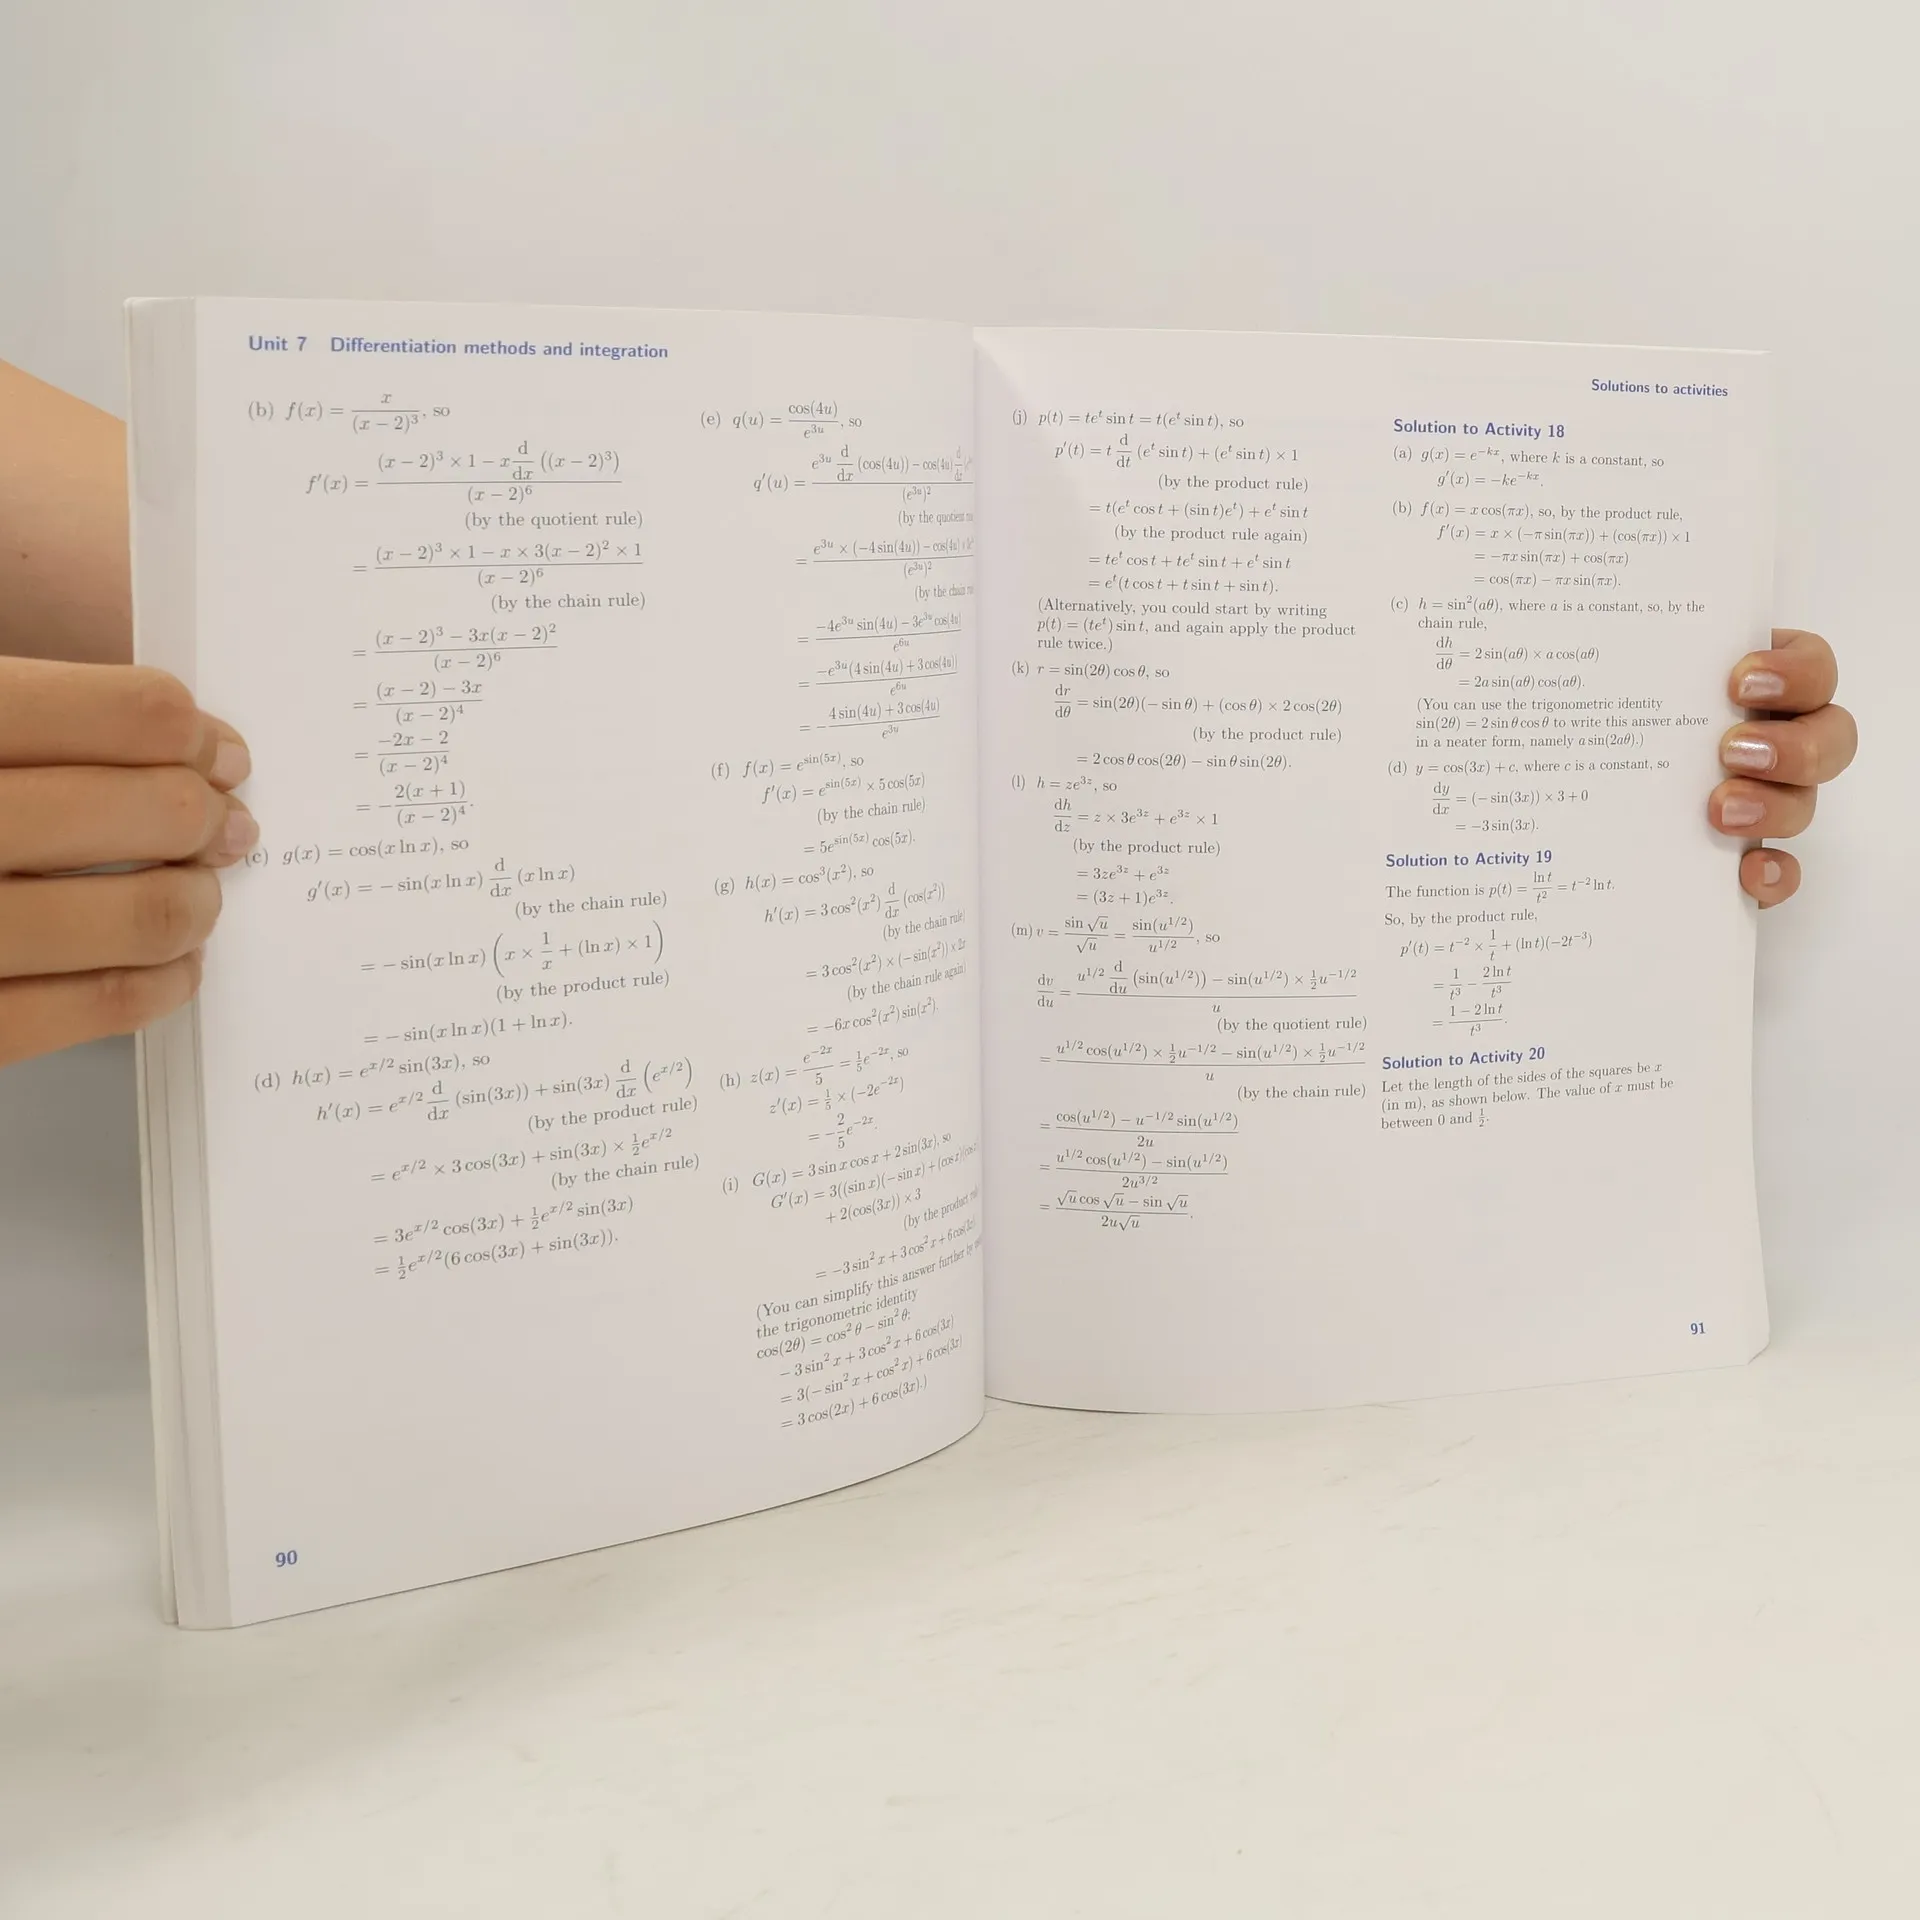 Unit 7 Differentiation methods and integration
(b) f(x) = x/(x − 2)³, so
f′(x) = ((x − 2)³ × 1 − x d/dx ((x − 2)³))/(x − 2)⁶
(by the quotient rule)
= ((x − 2)³ × 1 − x × 3(x − 2)² × 1)/(x − 2)⁶
(by the chain rule)
= ((x − 2)³ − 3x(x − 2)²)/(x − 2)⁶
= ((x − 2) − 3x)/(x − 2)⁴
= (−2x − 2)/(x − 2)⁴
= − 2(x + 1)/(x − 2)⁴.
(c) g(x) = cos(x ln x), so
g′(x) = − sin(x ln x) d/dx (x ln x)
(by the chain rule)
= − sin(x ln x) (x × 1/x + (ln x) × 1)
(by the product rule)
= − sin(x ln x)(1 + ln x).
(d) h(x) = e^(x/2) sin(3x), so
h′(x) = e^(x/2) d/dx (sin(3x)) + sin(3x) d/dx (e^(x/2))
(by the product rule)
= e^(x/2) × 3 cos(3x) + sin(3x) × ½e^(x/2)
(by the chain rule)
= 3e^(x/2) cos(3x) + ½e^(x/2) sin(3x)
= ½e^(x/2)(6 cos(3x) + sin(3x)).
90
(e) q(u) = cos(4u)/e^(3u), so
q′(u) = (e^(3u) d/dx (cos(4u)) − cos(4u) d/dx)/(e^(3u))²
(by the quotient
= (e^(3u) × (−4 sin(4u)) − cos(4u) ×)/(e^(3u))²
(by the chain
= (−4e^(3u) sin(4u) − 3e^(3u) cos(4u))/e^(6u)
= (−e^(3u)(4 sin(4u) + 3 cos(4u)))/e^(6u)
= − (4 sin(4u) + 3 cos(4u))/e^(3u)
(f) f(x) = e^(sin(5x)), so
f′(x) = e^(sin(5x)) × 5 cos(5x)
(by the chain rule)
= 5e^(sin(5x)) cos(5x).
(g) h(x) = cos³(x²), so
h′(x) = 3 cos²(x²) d/dx (cos(x²))
(by the chain rule)
= 3 cos²(x²) × (− sin(x²)) × 2x
(by the chain rule again)
= −6x cos²(x²) sin(x²).
(h) z(x) = e^(−2x)/5 = ⅕e^(−2x), so
z′(x) = ⅕ × (−2e^(−2x))
= −2/5 e^(−2x).
(i) G(x) = 3 sin x cos x + 2 sin(3x), so
G′(x) = 3((sin x)(− sin x) + (cos x)(cos
+ 2(cos(3x)) × 3
(by the product
= −3 sin² x + 3 cos² x + 6 cos(3x).
(You can simplify this answer further by
the trigonometric identity
cos(2θ) = cos² θ − sin² θ:
− 3 sin² x + 3 cos² x + 6 cos(3x)
= 3(− sin² x + cos² x) + 6 cos(3x)
= 3 cos(2x) + 6 cos(3x).)
Solutions to activities
(j) p(t) = te^t sin t = t(e^t sin t), so
p′(t) = t d/dt (e^t sin t) + (e^t sin t) × 1
(by the product rule)
= t(e^t cos t + (sin t)e^t) + e^t sin t
(by the product rule again)
= te^t cos t + te^t sin t + e^t sin t
= e^t(t cos t + t sin t + sin t).
(Alternatively, you could start by writing
p(t) = (te^t) sin t, and again apply the product
rule twice.)
(k) r = sin(2θ) cos θ, so
dr/dθ = sin(2θ)(− sin θ) + (cos θ) × 2 cos(2θ)
(by the product rule)
= 2 cos θ cos(2θ) − sin θ sin(2θ).
(l) h = ze^(3z), so
dh/dz = z × 3e^(3z) + e^(3z) × 1
(by the product rule)
= 3ze^(3z) + e^(3z)
= (3z + 1)e^(3z).
(m) v = sin √u/√u = sin(u^(1/2))/u^(1/2), so
dv/du = (u^(1/2) d/du (sin(u^(1/2))) − sin(u^(1/2)) × ½u^(−1/2))/u
(by the quotient rule)
= (u^(1/2) cos(u^(1/2)) × ½u^(−1/2) − sin(u^(1/2)) × ½u^(−1/2))/u
(by the chain rule)
= (cos(u^(1/2)) − u^(−1/2) sin(u^(1/2)))/2u
= (u^(1/2) cos(u^(1/2)) − sin(u^(1/2)))/2u^(3/2)
= (√u cos √u − sin √u)/2u√u.
Solution to Activity 18
(a) g(x) = e^(−kx), where k is a constant, so
g′(x) = −ke^(−kx).
(b) f(x) = x cos(πx), so, by the product rule,
f′(x) = x × (−π sin(πx)) + (cos(πx)) × 1
= −πx sin(πx) + cos(πx)
= cos(πx) − πx sin(πx).
(c) h = sin²(aθ), where a is a constant, so, by the
chain rule,
dh/dθ = 2 sin(aθ) × a cos(aθ)
= 2a sin(aθ) cos(aθ).
(You can use the trigonometric identity
sin(2θ) = 2 sin θ cos θ to write this answer above
in a neater form, namely a sin(2aθ).)
(d) y = cos(3x) + c, where c is a constant, so
dy/dx = (− sin(3x)) × 3 + 0
= −3 sin(3x).
Solution to Activity 19
The function is p(t) = ln t/t² = t⁻² ln t.
So, by the product rule,
p′(t) = t⁻² × 1/t + (ln t)(−2t⁻³)
= 1/t³ − 2 ln t/t³
= (1 − 2 ln t)/t³.
Solution to Activity 20
Let the length of the sides of the squares be x
(in m), as shown below. The value of x must be
between 0 and ½.
91